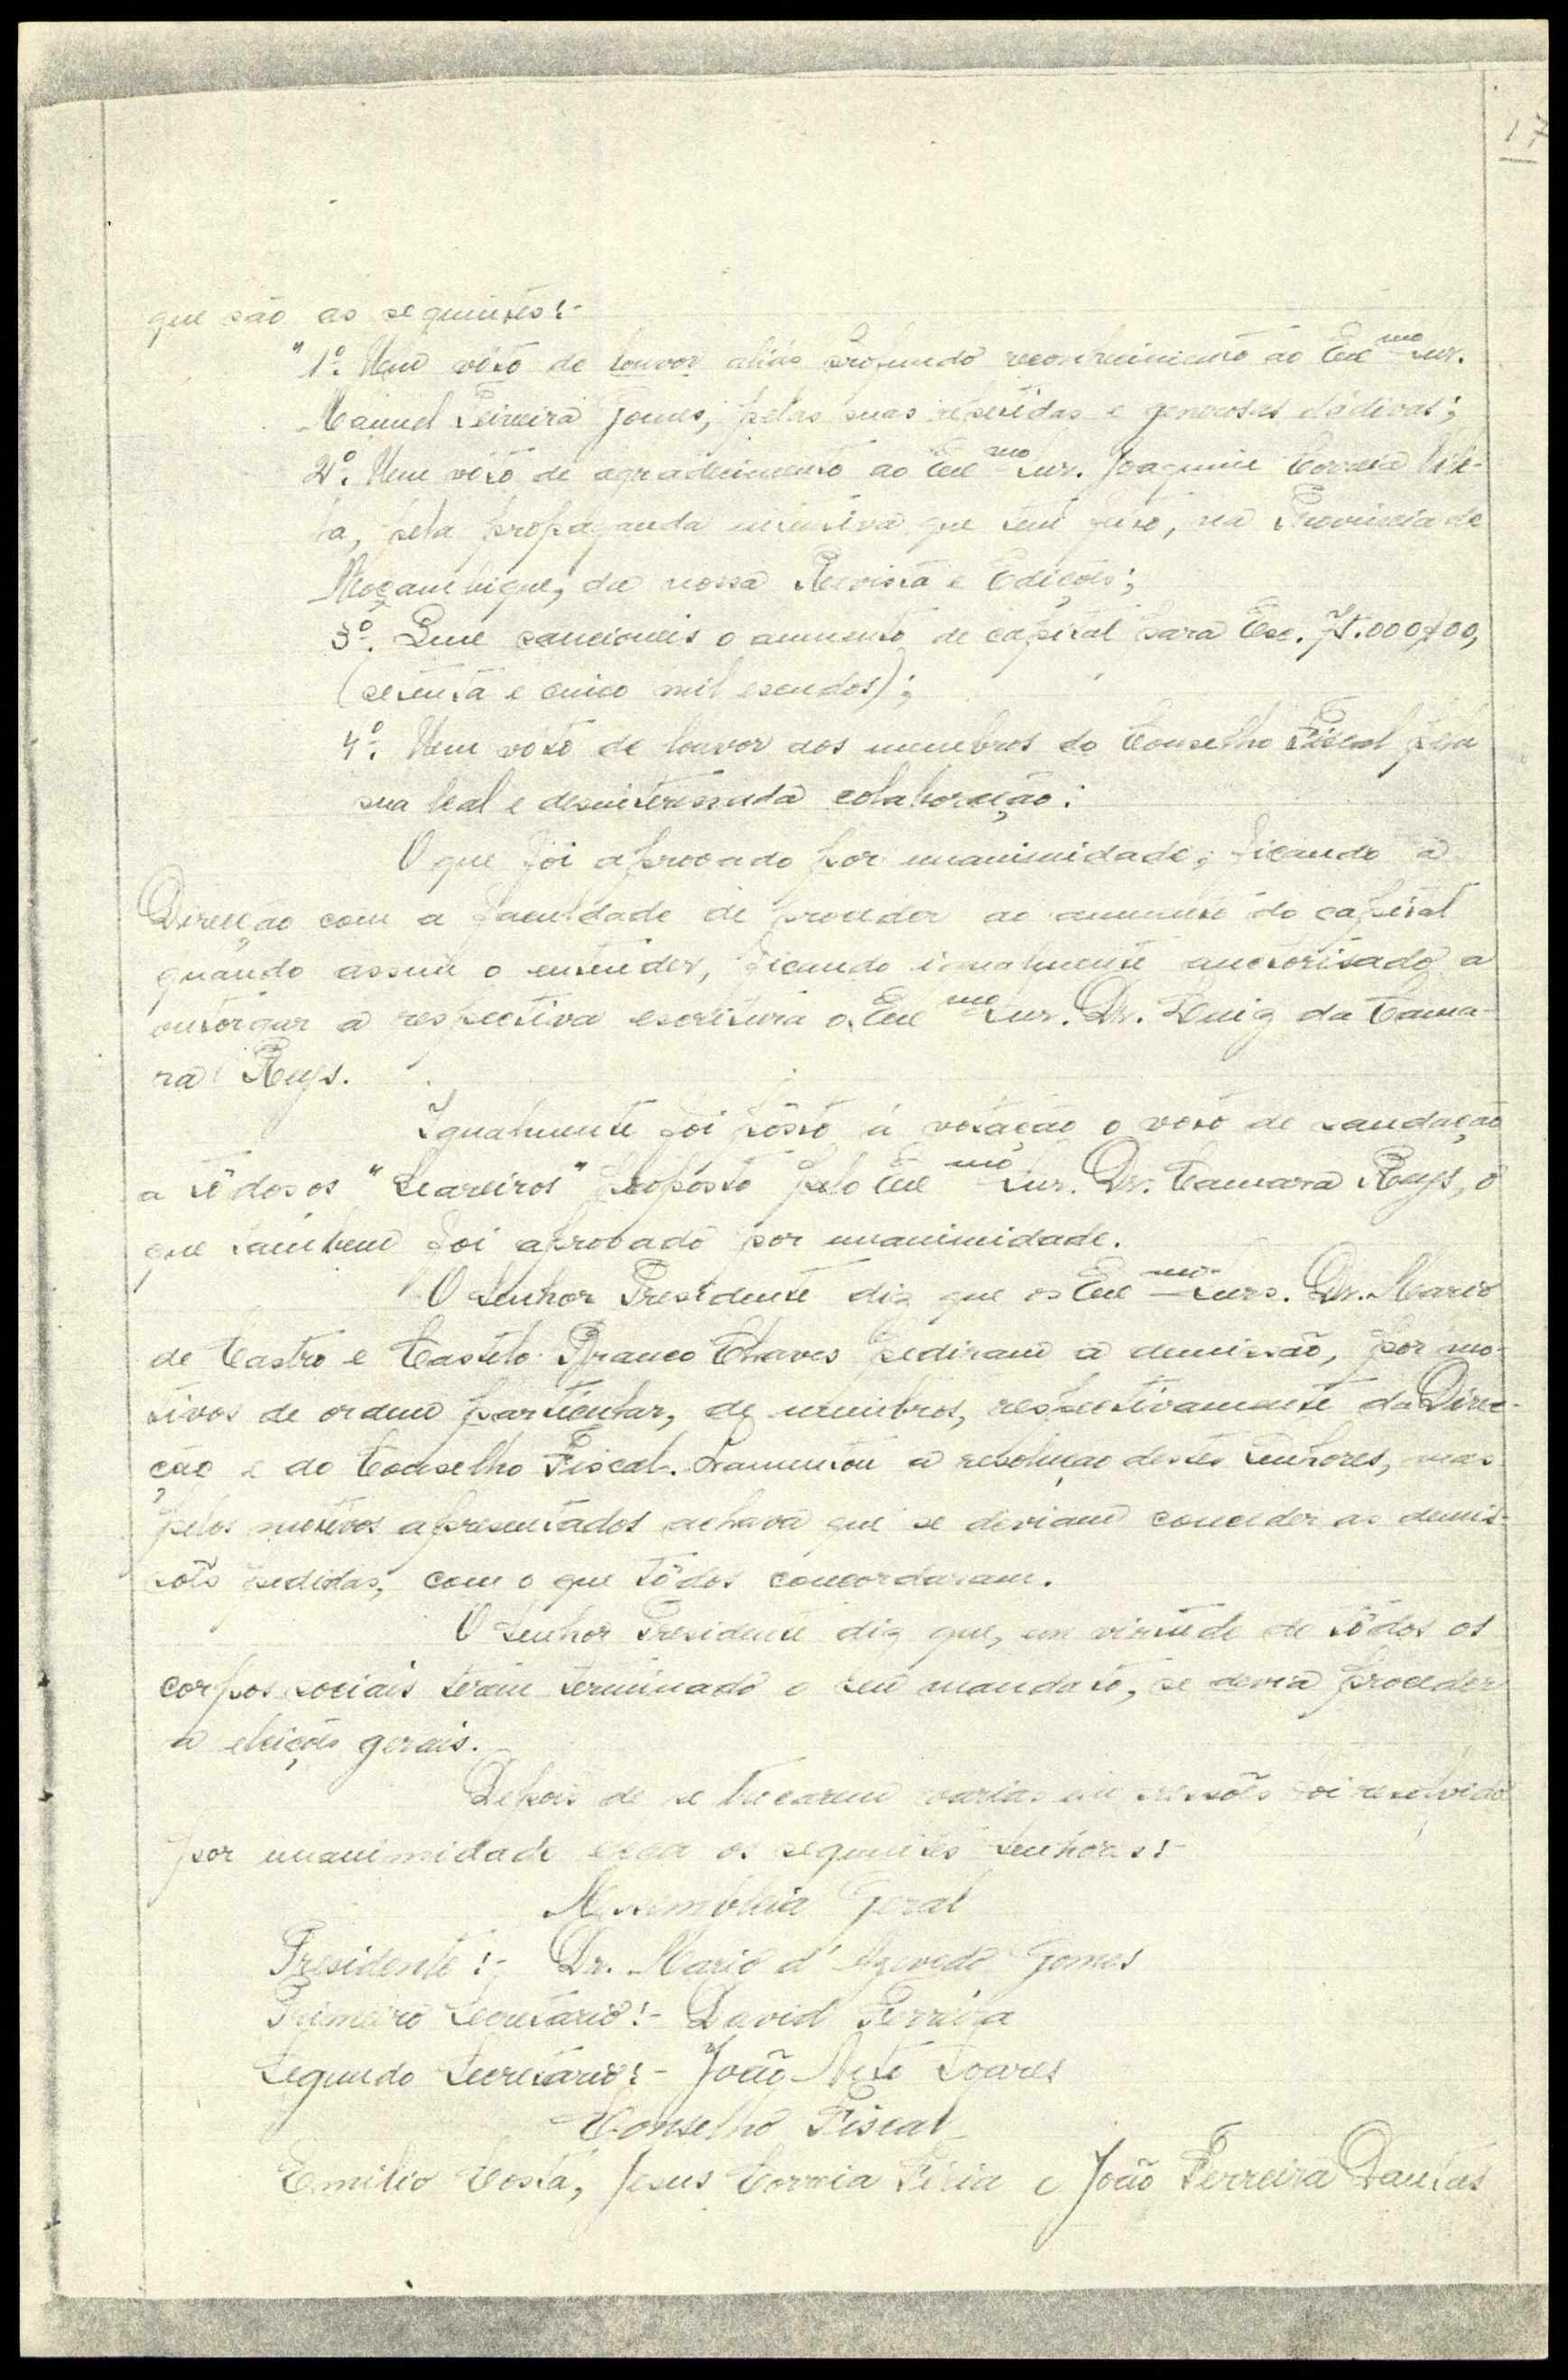 17
que são as seguintes:-
"1º. Um vóto de louvor aliás profundo reconhecimento ao Exe mo Snr.
Manuel Teixeira Gomes, pelas suas repetidas e generosas dádivas;
2º. Um vóto de agradecimento ao Exe mo Snr. Joaquim Correia
pela propaganda intensiva que tem feito, na Provincia de
Moçambique, da nossa Revista e Edições;
3º. Que sancioneis o aumento de capital para Esc. 75.000$00,
(setenta e cinco mil escudos);
4º. Um vóto de louvor aos membros do Conselho Fiscal pela
sua leal e desinteressada colaboração:
O que foi aprovado por unanimidade; ficando a
Direcção com a faculdade de proceder ao aumento do capital
quando assim o entender, ficando igualmente auctorisado a
outorgar a respectiva escritura o Exe mo Snr. Dr. Luiz da Cama-
ra Reys.
Igualmente foi pôsto á votação o voto de saudação
a tôdos os "Seareiros" proposto pelo Exe mo Snr. Dr. Camara Reys, o
que tambem foi aprovado por unanimidade.
O Senhor Presidente diz que os Exe mos Snrs. Dr. Mario
de Castro e Castelo Branco Chaves pediram a demissão, por mo-
tivos de ordem particular, de membros, respectivamente da Direc-
ção e do Conselho Fiscal. Lamentou a resolução destes Senhores, mas
pelos motivos apresentados achava que se deviam conceder as demis-
sões pedidas, com o que tôdos concordaram.
O Senhor Presidente diz que, em virtude de tôdos os
corpos sociais terem terminado o seu mandato, se devia proceder
a eleições gerais.
Depois de se trocarem varias impressões foi resolvido
por unanimidade eleger os seguintes Senhores:-
Assembleia Geral
Presidente:- Dr. Mario d'Azevedo Gomes
Primeiro Secretario:- David Ferreira
Segundo Secretário:- João Neto Soares
Conselho Fiscal
Emilio Costa, Jesus Correia e João Ferreira Dantas